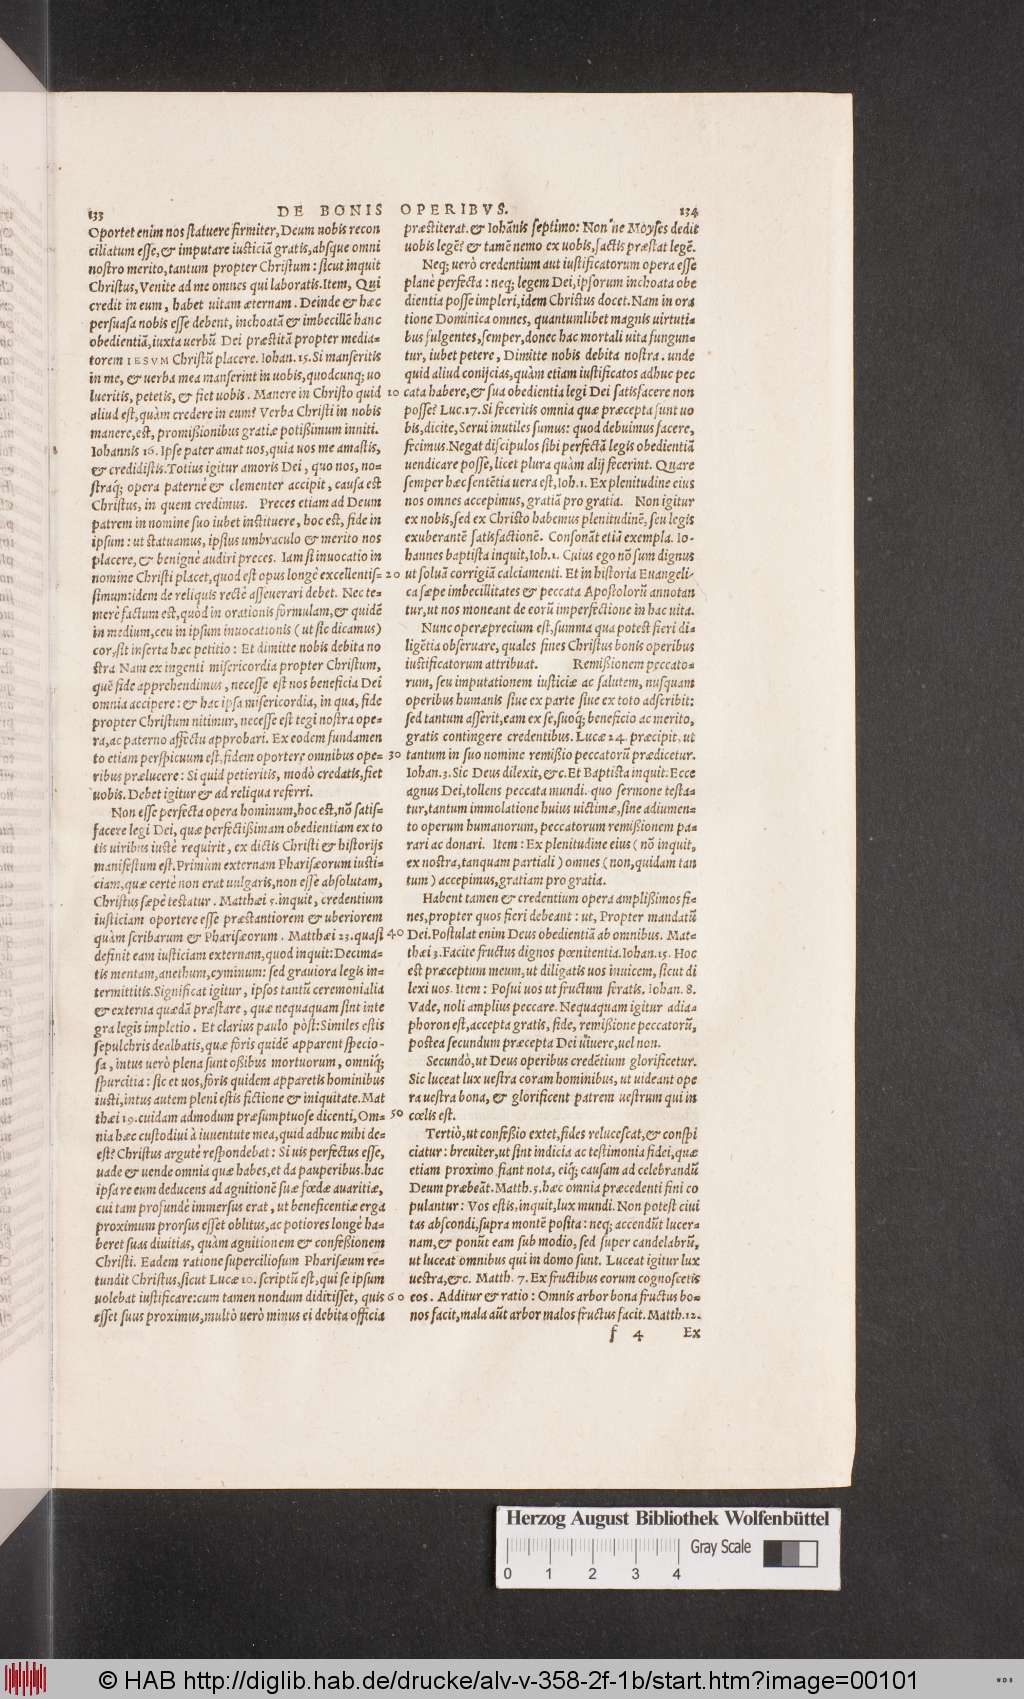 133
DE BONIS OPERIBVS.
134
Oportet enim nos ſtatuere firmiter, Deum nobis recon
ciliatum eſſe, & imputare iuſticiā gratis, abſque omni
noſtro merito, tantum propter Chriſtum: ſicut inquit
Chriſtus, Venite ad me omnes qui laboratis. Item, Qui
credit in eum, habet uitam æternam. Deinde & hæc
perſuaſa nobis eſſe debent, inchoatā & imbecillē hanc
obedientiā, iuxta uerbū Dei præſtitā propter media-
torem IESVM Chriſtū placere. Iohan. 15. Si manſeritis
in me, & uerba mea manſerint in uobis, quodcunq; uo
lueritis, petetis, & fiet uobis. Manere in Chriſto quid
aliud eſt, quàm credere in eum? Verba Chriſti in nobis
manere, eſt, promißionibus gratiæ potißimum inniti.
Iohannis 16. Ipſe pater amat uos, quia uos me amaſtis,
& credidiſtis. Totius igitur amoris Dei, quo nos, no-
ſtraq; opera paternè & clementer accipit, cauſa eſt
Chriſtus, in quem credimus. Preces etiam ad Deum
patrem in nomine ſuo iubet inſtituere, hoc eſt, fide in
ipſum: ut ſtatuamus, ipſius umbraculo & merito nos
placere, & benignè audiri preces. Iam ſi inuocatio in
nomine Chriſti placet, quod eſt opus longè excellentiſ-
ſimum: idem de reliquis rectè aſſeuerari debet. Nec te-
merè factum eſt, quòd in orationis formulam, & quidē
in medium, ceu in ipſum inuocationis (ut ſic dicamus)
cor, ſit inſerta hæc petitio: Et dimitte nobis debita no
ſtra Nam ex ingenti miſericordia propter Chriſtum,
quē fide apprehendimus, neceſſe eſt nos beneficia Dei
omnia accipere: & hac ipſa miſericordia, in qua, fide
propter Chriſtum nitimur, neceſſe eſt tegi noſtra ope-
ra, ac paterno affectu approbari. Ex eodem fundamen
to etiam perſpicuum eſt, fidem oportere omnibus ope-
ribus prælucere: Si quid petieritis, modò credatis, fiet
uobis. Debet igitur & ad reliqua referri.
Non eſſe perfecta opera hominum, hoc eſt, nō ſatiſ-
facere legi Dei, quæ perfectißimam obedientiam ex to
tis uiribus iuſtè requirit, ex dictis Chriſti & hiſtorijs
manifeſtum eſt. Primùm externam Phariſæorum iuſti-
ciam, quæ certè non erat uulgaris, non eſſe abſolutam,
Chriſtus ſæpè teſtatur. Matthæi 5. inquit, credentium
iuſticiam oportere eſſe præſtantiorem & uberiorem
quàm ſcribarum & Phariſæorum. Matthæi 23. quaſi
definit eam iuſticiam externam, quod inquit: Decima-
tis mentam, anethum, cyminum: ſed grauiora legis in-
termittitis. Significat igitur, ipſos tantū ceremonialia
& externa quædā præſtare, quæ nequaquam ſint inte
gra legis impletio. Et clarius paulo pòſt: Similes eſtis
ſepulchris dealbatis, quæ foris quidē apparent ſpecio-
ſa, intus uerò plena ſunt oßibus mortuorum, omniq;
ſpurcitia: ſic et uos, foris quidem apparetis hominibus
iuſti, intus autem pleni eſtis fictione & iniquitate. Mat
thæi 19. cuidam admodum præſumptuoſe dicenti, Om-
nia hæc cuſtodiui à iuuentute mea, quid adhuc mihi de-
eſt? Chriſtus argutè reſpondebat: Si uis perfectus eſſe,
uade & uende omnia quæ habes, et da pauperibus. hac
ipſa re eum deducens ad agnitionē ſuæ fœdæ auaritiæ,
cui tam profundè immerſus erat, ut beneficentiæ erga
proximum prorſus eſſet oblitus, ac potiores longè ha-
beret ſuas diuitias, quàm agnitionem & confeßionem
Chriſti. Eadem ratione ſupercilioſum Phariſæum re-
tundit Chriſtus, ſicut Lucæ 10. ſcriptū eſt, qui ſe ipſum
uolebat iuſtificare: cum tamen nondum didiciſſet, quis
eſſet ſuus proximus, multò uerò minus ei debita officia
10
20
30
40
50
60
præſtiterat. & Iohānis ſeptimo: Non'ne Moyſes dedit
uobis legē? & tamē nemo ex uobis, factis præſtat legē.
Neq; uerò credentium aut iuſtificatorum opera eſſe
planè perfecta: neq; legem Dei, ipſorum inchoata obe
dientia poſſe impleri, idem Chriſtus docet. Nam in ora
tione Dominica omnes, quantumlibet magnis uirtuti-
bus fulgentes, ſemper, donec hac mortali uita fungun-
tur, iubet petere, Dimitte nobis debita noſtra. unde
quid aliud conijcias, quàm etiam iuſtificatos adhuc pec
cata habere, & ſua obedientia legi Dei ſatisfacere non
poſſe? Luc. 17. Si feceritis omnia quæ præcepta ſunt uo
bis, dicite, Serui inutiles ſumus: quod debuimus facere,
fecimus. Negat diſcipulos ſibi perfectā legis obedientiā
uendicare poſſe, licet plura quàm alij fecerint. Quare
ſemper hæc ſentētia uera eſt, Ioh. 1. Ex plenitudine eius
nos omnes accepimus, gratiā pro gratia. Non igitur
ex nobis, ſed ex Chriſto habemus plenitudinē, ſeu legis
exuberantē ſatisfactionē. Conſonāt etiā exempla. Io-
hannes baptiſta inquit, Ioh. 1. Cuius ego nō ſum dignus
ut ſoluā corrigiā calciamenti. Et in hiſtoria Euangeli-
ca ſæpe imbecillitates & peccata Apoſtolorū annotan
tur, ut nos moneant de eorū imperfectione in hac uita.
Nunc operæprecium eſt, ſumma qua poteſt fieri di-
ligētia obſeruare, quales fines Chriſtus bonis operibus
iuſtificatorum attribuat. Remißionem peccato-
rum, ſeu imputationem iuſticiæ ac ſalutem, nuſquam
operibus humanis ſiue ex parte ſiue ex toto adſcribit:
ſed tantum aſſerit, eam ex ſe, ſuoq; beneficio ac merito,
gratis contingere credentibus. Lucæ 24. præcipit, ut
tantum in ſuo nomine remißio peccatorū prædicetur.
Iohan. 3. Sic Deus dilexit, &c. Et Baptiſta inquit: Ecce
agnus Dei, tollens peccata mundi. quo ſermone teſta-
tur, tantum immolatione huius uictimæ, ſine adiumen-
to operum humanorum, peccatorum remißionem pa-
rari ac donari. Item: Ex plenitudine eius (nō inquit,
ex noſtra, tanquam partiali) omnes (non, quidam tan
tum) accepimus, gratiam pro gratia.
Habent tamen & credentium opera amplißimos fi-
nes, propter quos fieri debeant: ut, Propter mandatū
Dei. Poſtulat enim Deus obedientiā ab omnibus. Mat-
thæi 3. Facite fructus dignos pœnitentia. Iohan. 15. Hoc
eſt præceptum meum, ut diligatis uos inuicem, ſicut di
lexi uos. Item: Poſui uos ut fructum feratis. Iohan. 8.
Vade, noli amplius peccare. Nequaquam igitur adia-
phoron eſt, accepta gratis, fide, remißione peccatorū,
poſtea ſecundum præcepta Dei uiuere, uel non.
Secundò, ut Deus operibus credētium glorificetur.
Sic luceat lux ueſtra coram hominibus, ut uideant ope
ra ueſtra bona, & glorificent patrem ueſtrum qui in
cœlis eſt.
Tertiò, ut confeßio extet, fides reluceſcat, & conſpi
ciatur: breuiter, ut ſint indicia ac teſtimonia fidei, quæ
etiam proximo fiant nota, eiq; cauſam ad celebrandū
Deum præbeāt. Matth. 5. hæc omnia præcedenti fini co
pulantur: Vos eſtis, inquit, lux mundi. Non poteſt ciui
tas abſcondi, ſupra montē poſita: neq; accendūt lucer-
nam, & ponūt eam ſub modio, ſed ſuper candelabrū,
ut luceat omnibus qui in domo ſunt. Luceat igitur lux
ueſtra, &c. Matth. 7. Ex fructibus eorum cognoſcetis
eos. Additur & ratio: Omnis arbor bona fructus bo-
nos facit, mala aūt arbor malos fructus facit. Matth. 12.
f 4 Ex
Herzog August Bibliothek Wolfenbüttel
Gray Scale
0 1 2 3 4
© HAB http://diglib.hab.de/drucke/alv-v-358-2f-1b/start.htm?image=00101